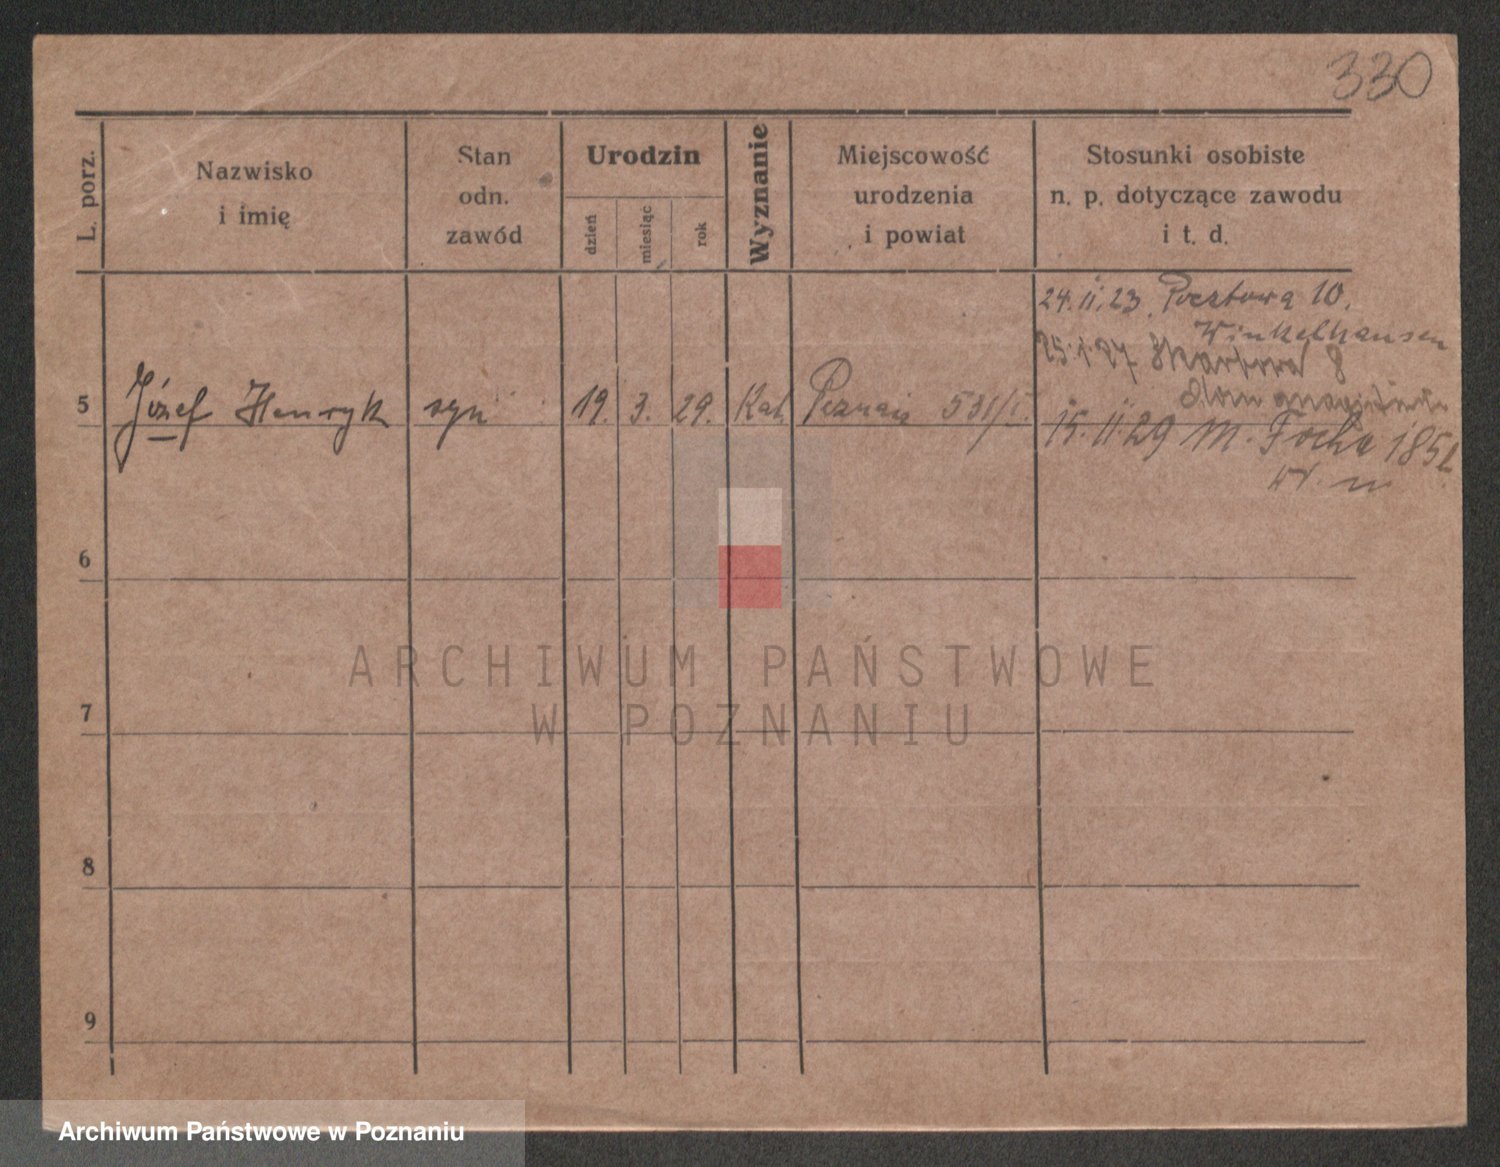 330
L. porz.
Nazwisko
i imię
Stan
odn.
zawód
Urodzin
dzień
miesiąc
rok
Wyznanie
Miejscowość
urodzenia
i powiat
Stosunki osobiste
n. p. dotyczące zawodu
i t. d.
24.II.23. Pocztowa 10.
Winkelhausen
25.1.27 8
5 Józef Henryk syn 19. 3. 29. Kat. Poznań 531/I.
15.II.29 M. Focha 185
6
7
8
9
ARCHIWUM PAŃSTWOWE
W POZNANIU
Archiwum Państwowe w Poznaniu